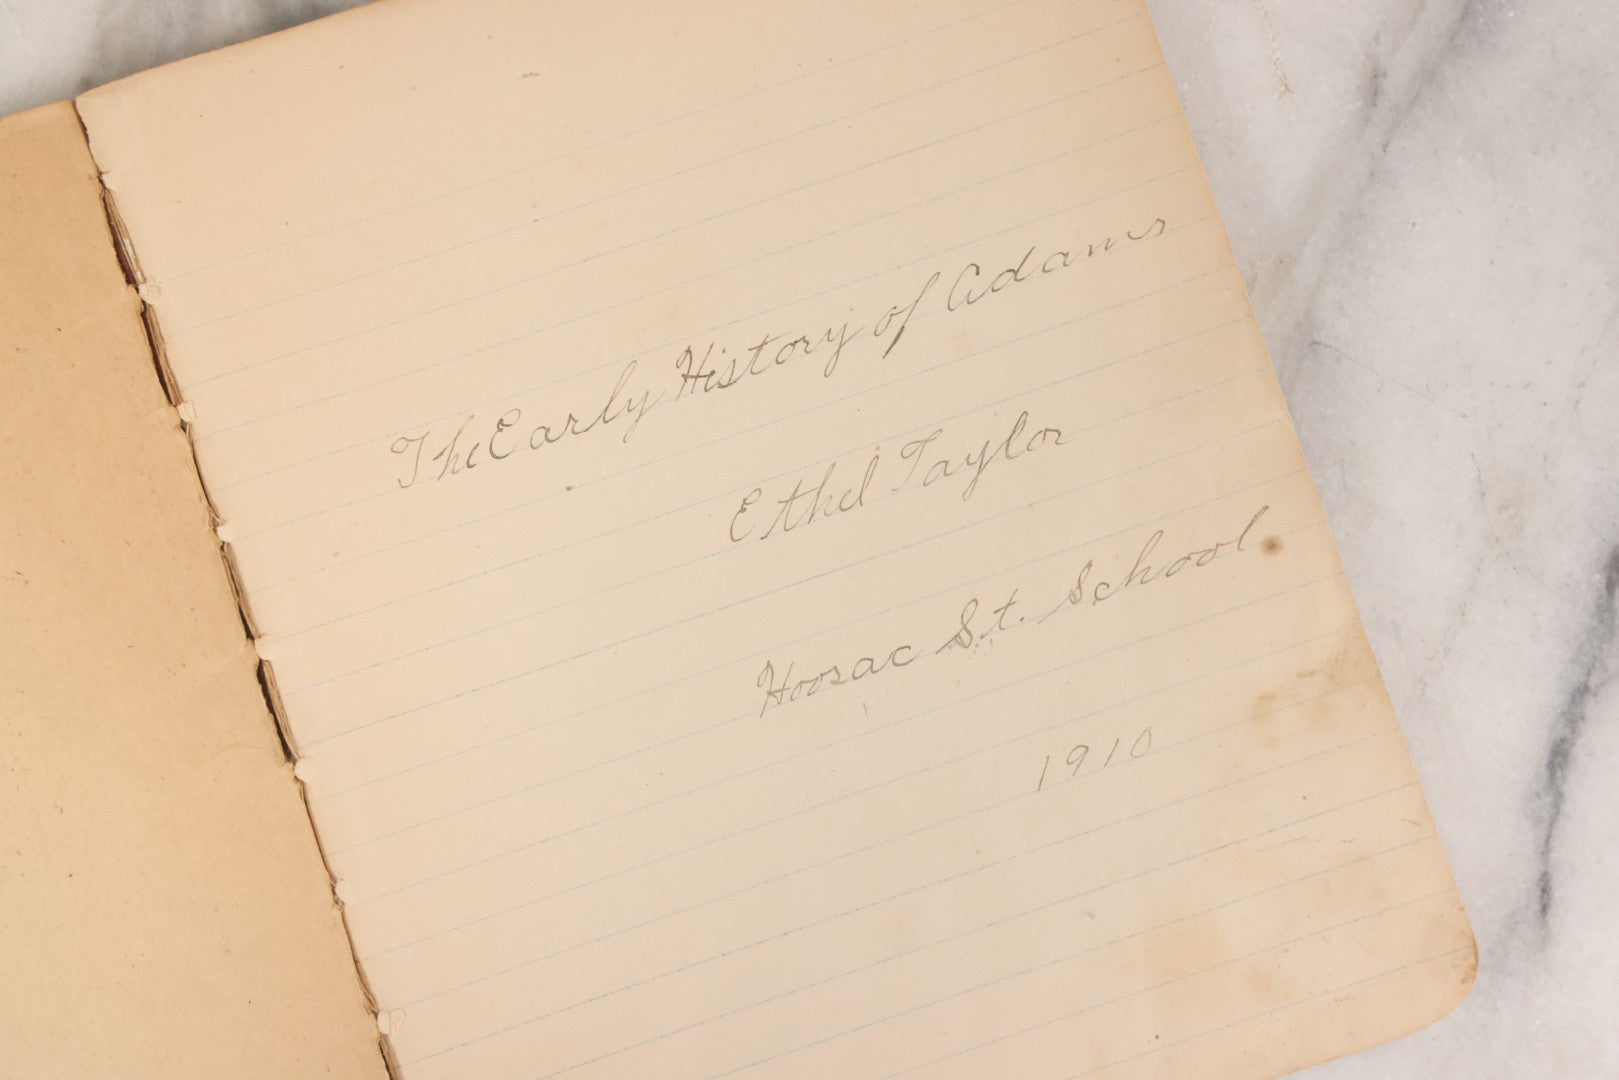 The Early History of Adams
Ethel Taylor
Hoosac St. School.
1910